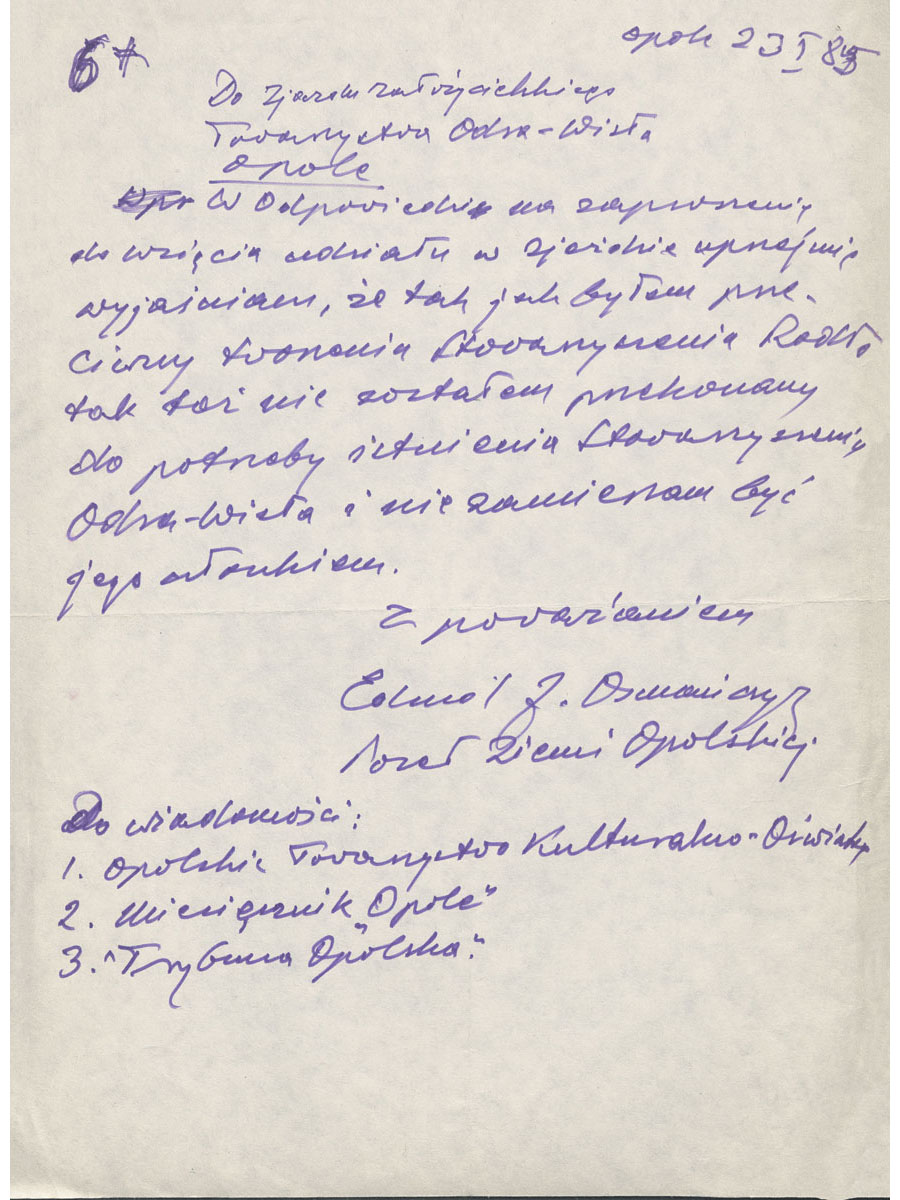 6+
Opole 23 I 85
Do zjazdu założycielskiego
Towarzystwa Odra-Wisła
Opole
W Odpowiedzi na zaproszenie
do wzięcia udziału w zjeździe uprzejmie
wyjaśniam, że tak jak byłem prze-
ciwny tworzenia Stowarzyszenia Rodło
tak też nie zostałem przekonany
do potrzeby istnienia Stowarzyszenia
Odra-Wisła i nie zamierzam być
jego członkiem.
Z poważaniem
Edmund J. Osmańczyk
Poseł Ziemi Opolskiej
Do wiadomości:
1. Opolskie Towarzystwo Kulturalno-Oświatowe
2. Miesięcznik "Opole"
3. "Trybuna Opolska".